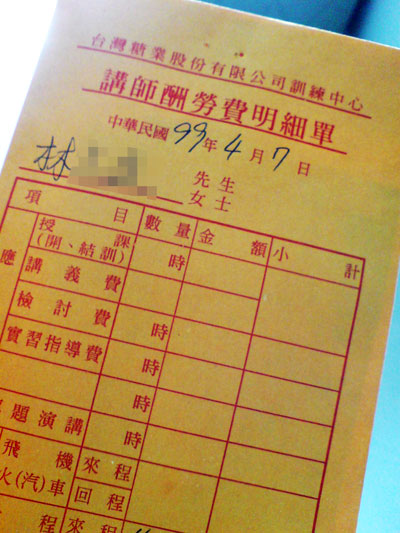 台灣糖業股份有限公司訓練中心
講師酬勞費明細單
中華民國 99 年 4 月 7 日
林 先生
女士
項 目 數量 金額 小計
應 授課 (開、結訓) 時
講義費
檢討費 時
實習指導費 時
時
題演講 時
飛機 來程
火(汽)車 回程
程 來程